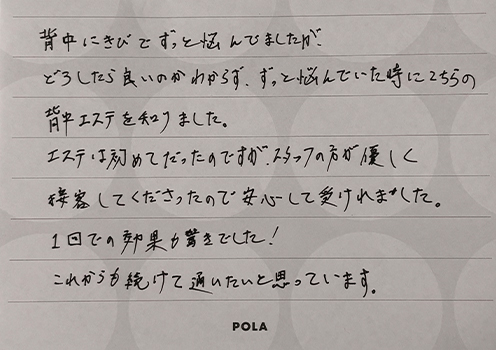 背中にきびでずっと悩んでましたが、
どうしたら良いのかわからず、ずっと悩んでいた時にこちらの
背中エステを知りました。
エステは初めてだったのですが、スタッフの方が優しく
接客してくださったので安心して受けれました。
1回での効果も驚きでした!
これからも続けて通いたいと思っています。
POLA